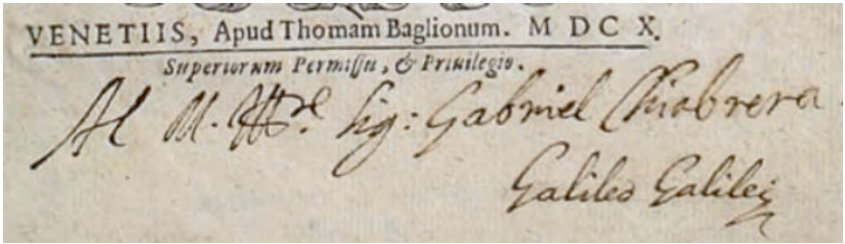 VENETIIS, Apud Thomam Baglionum. M D C X.
Superiorum Permissu, & Priuilegio.
Al M. Ill.re Sig: Gabriel Chiabrera.
Galileo Galilei